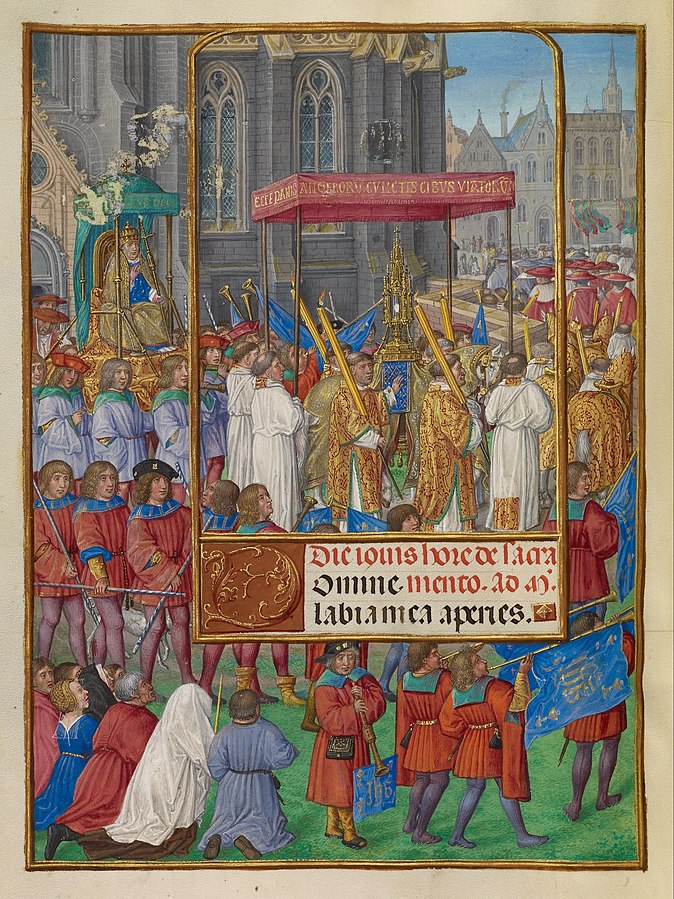 ECCE PANIS ANGELORV CVNCTIS CIBVS VIATORV
Die iouis hore de sacra
mento. Ad mr.
Domine
labia mea aperies.
ihs